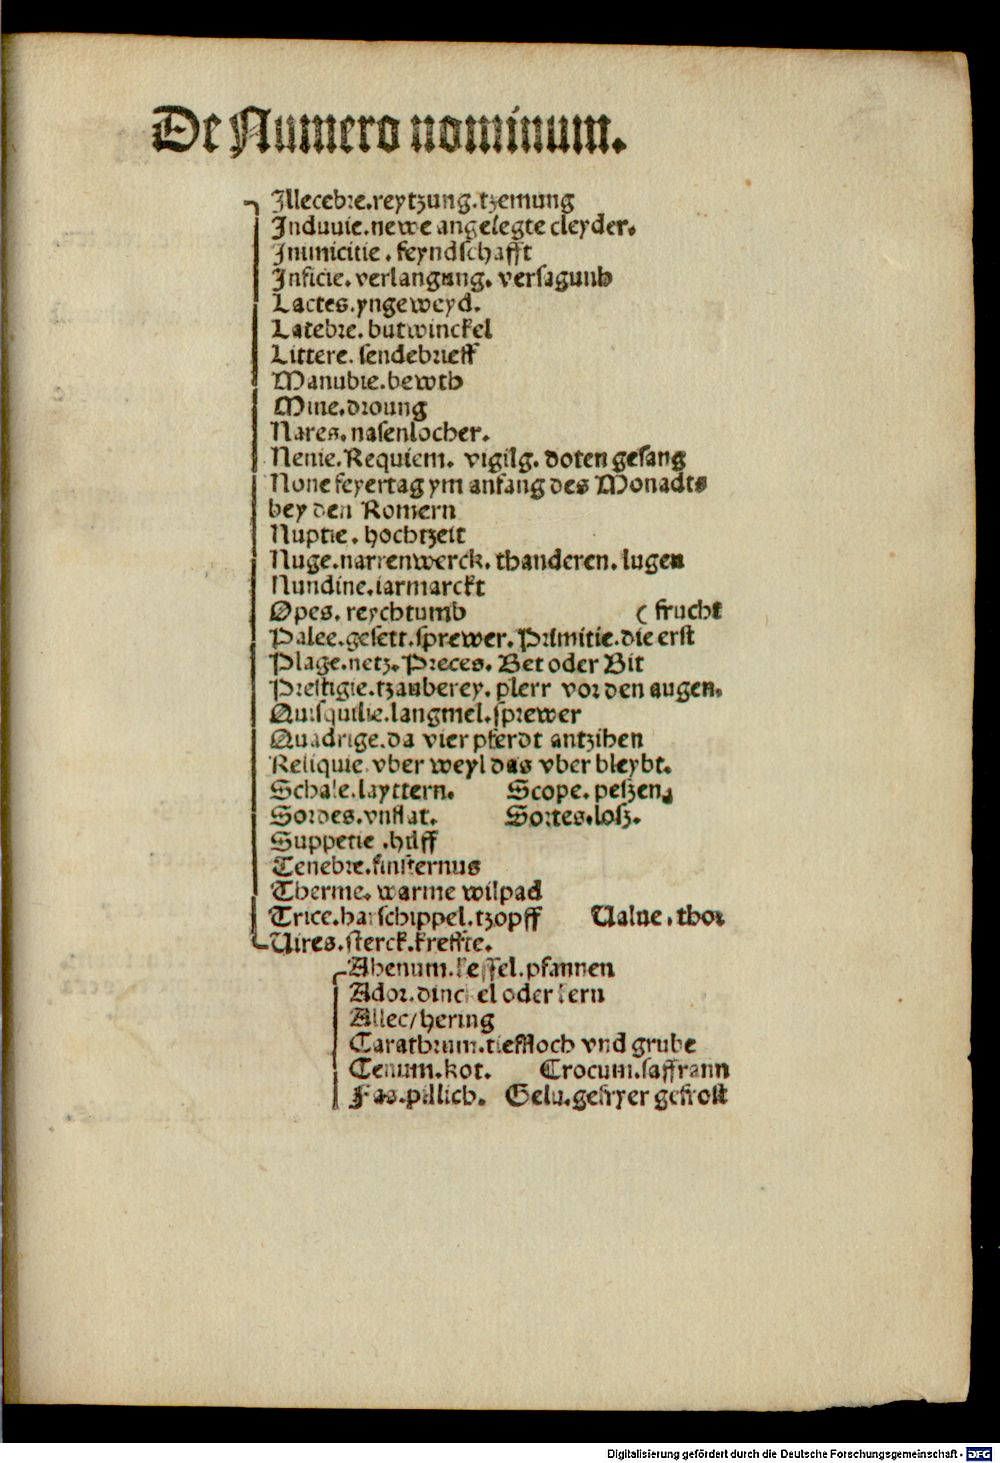 De Numero nominum.
Illecebre.reytzung.tzemung
Induuie.newe angelegte cleyder.
Inimicitie . feyndschafft
Inficie. verlangung. versagunb
Lactes.yngeweyd.
Latebre. butwinckel
Littere. sendebrieff
Manubie.bewtb
Mine.droung
Nares. nasenlocher.
Nenie.Requiem. vigilg. doten gesang
None feyertag ym anfang des Monadts
bey den Romern
Nuptie . hochtzeit
Nuge.narrenwerck. tbanderen. lugen
Nundine.iarmarckt
Opes. reychtumb ( frucht
Palee.gesett.sprewer. Primitie.die erst
Plage.netz. Preces. Bet oder Bit
Prestigie.tzauberey. plerr vor den augen.
Quisquilie.langmel.sprewer
Quadrige.da vier pferdt antzihen
Reliquie vber weyl das vber bleybt.
Schale.layttern. Scope. peszen.
Sordes.vnflat. Sortes.losz.
Suppetie .hilff
Tenebre.finsternus
Therme. warme wilpad
Trice.har schippel.tzopff Ualue . thor
Uires.sterck.kreffte.
Ahenum.kessel.pfannen
Ador.dinckel oder kern
Allec/hering
Carathrum.tieffloch vnd grube
Cenum.kot. Crocum.saffrann
Fas.pillich. Gelu.gefryer gefrost
Digitalisierung gefördert durch die Deutsche Forschungsgemeinschaft - DFG